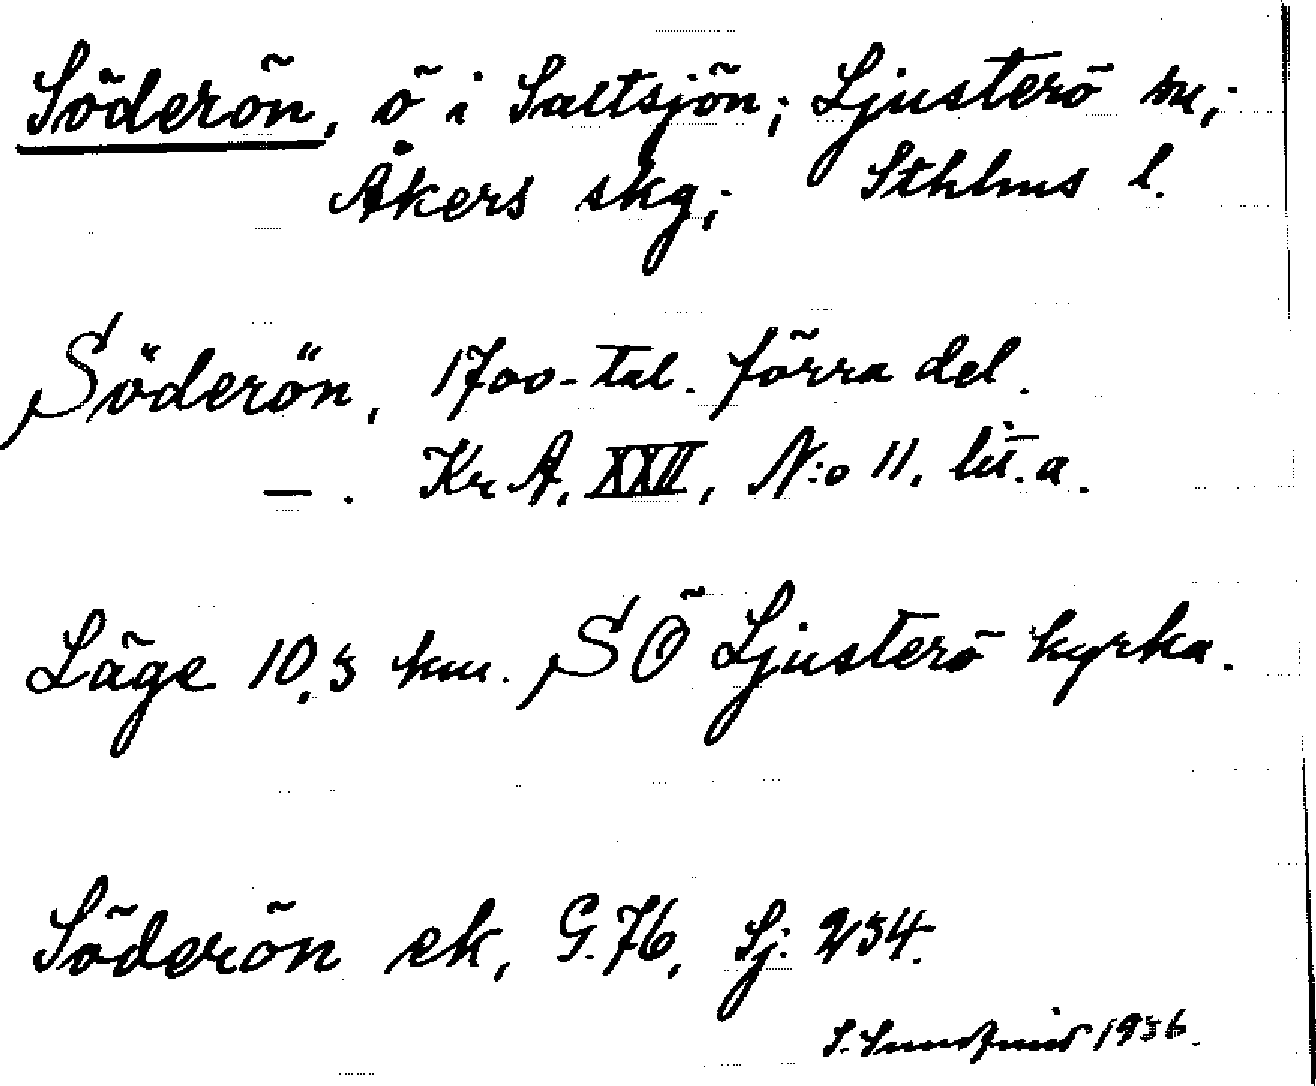 Söderön, ö i Saltsjön; Ljusterö sn;
Åkers skg; Sthlms l.
Söderön, 1700-tal. förra del.
— . Kr A. XXII, N:o 11. lit. a.
Läge 10,5 km. SÖ Ljusterö kyrka.
Söderön ek, G.76, Sj: 234.
S. 1936.